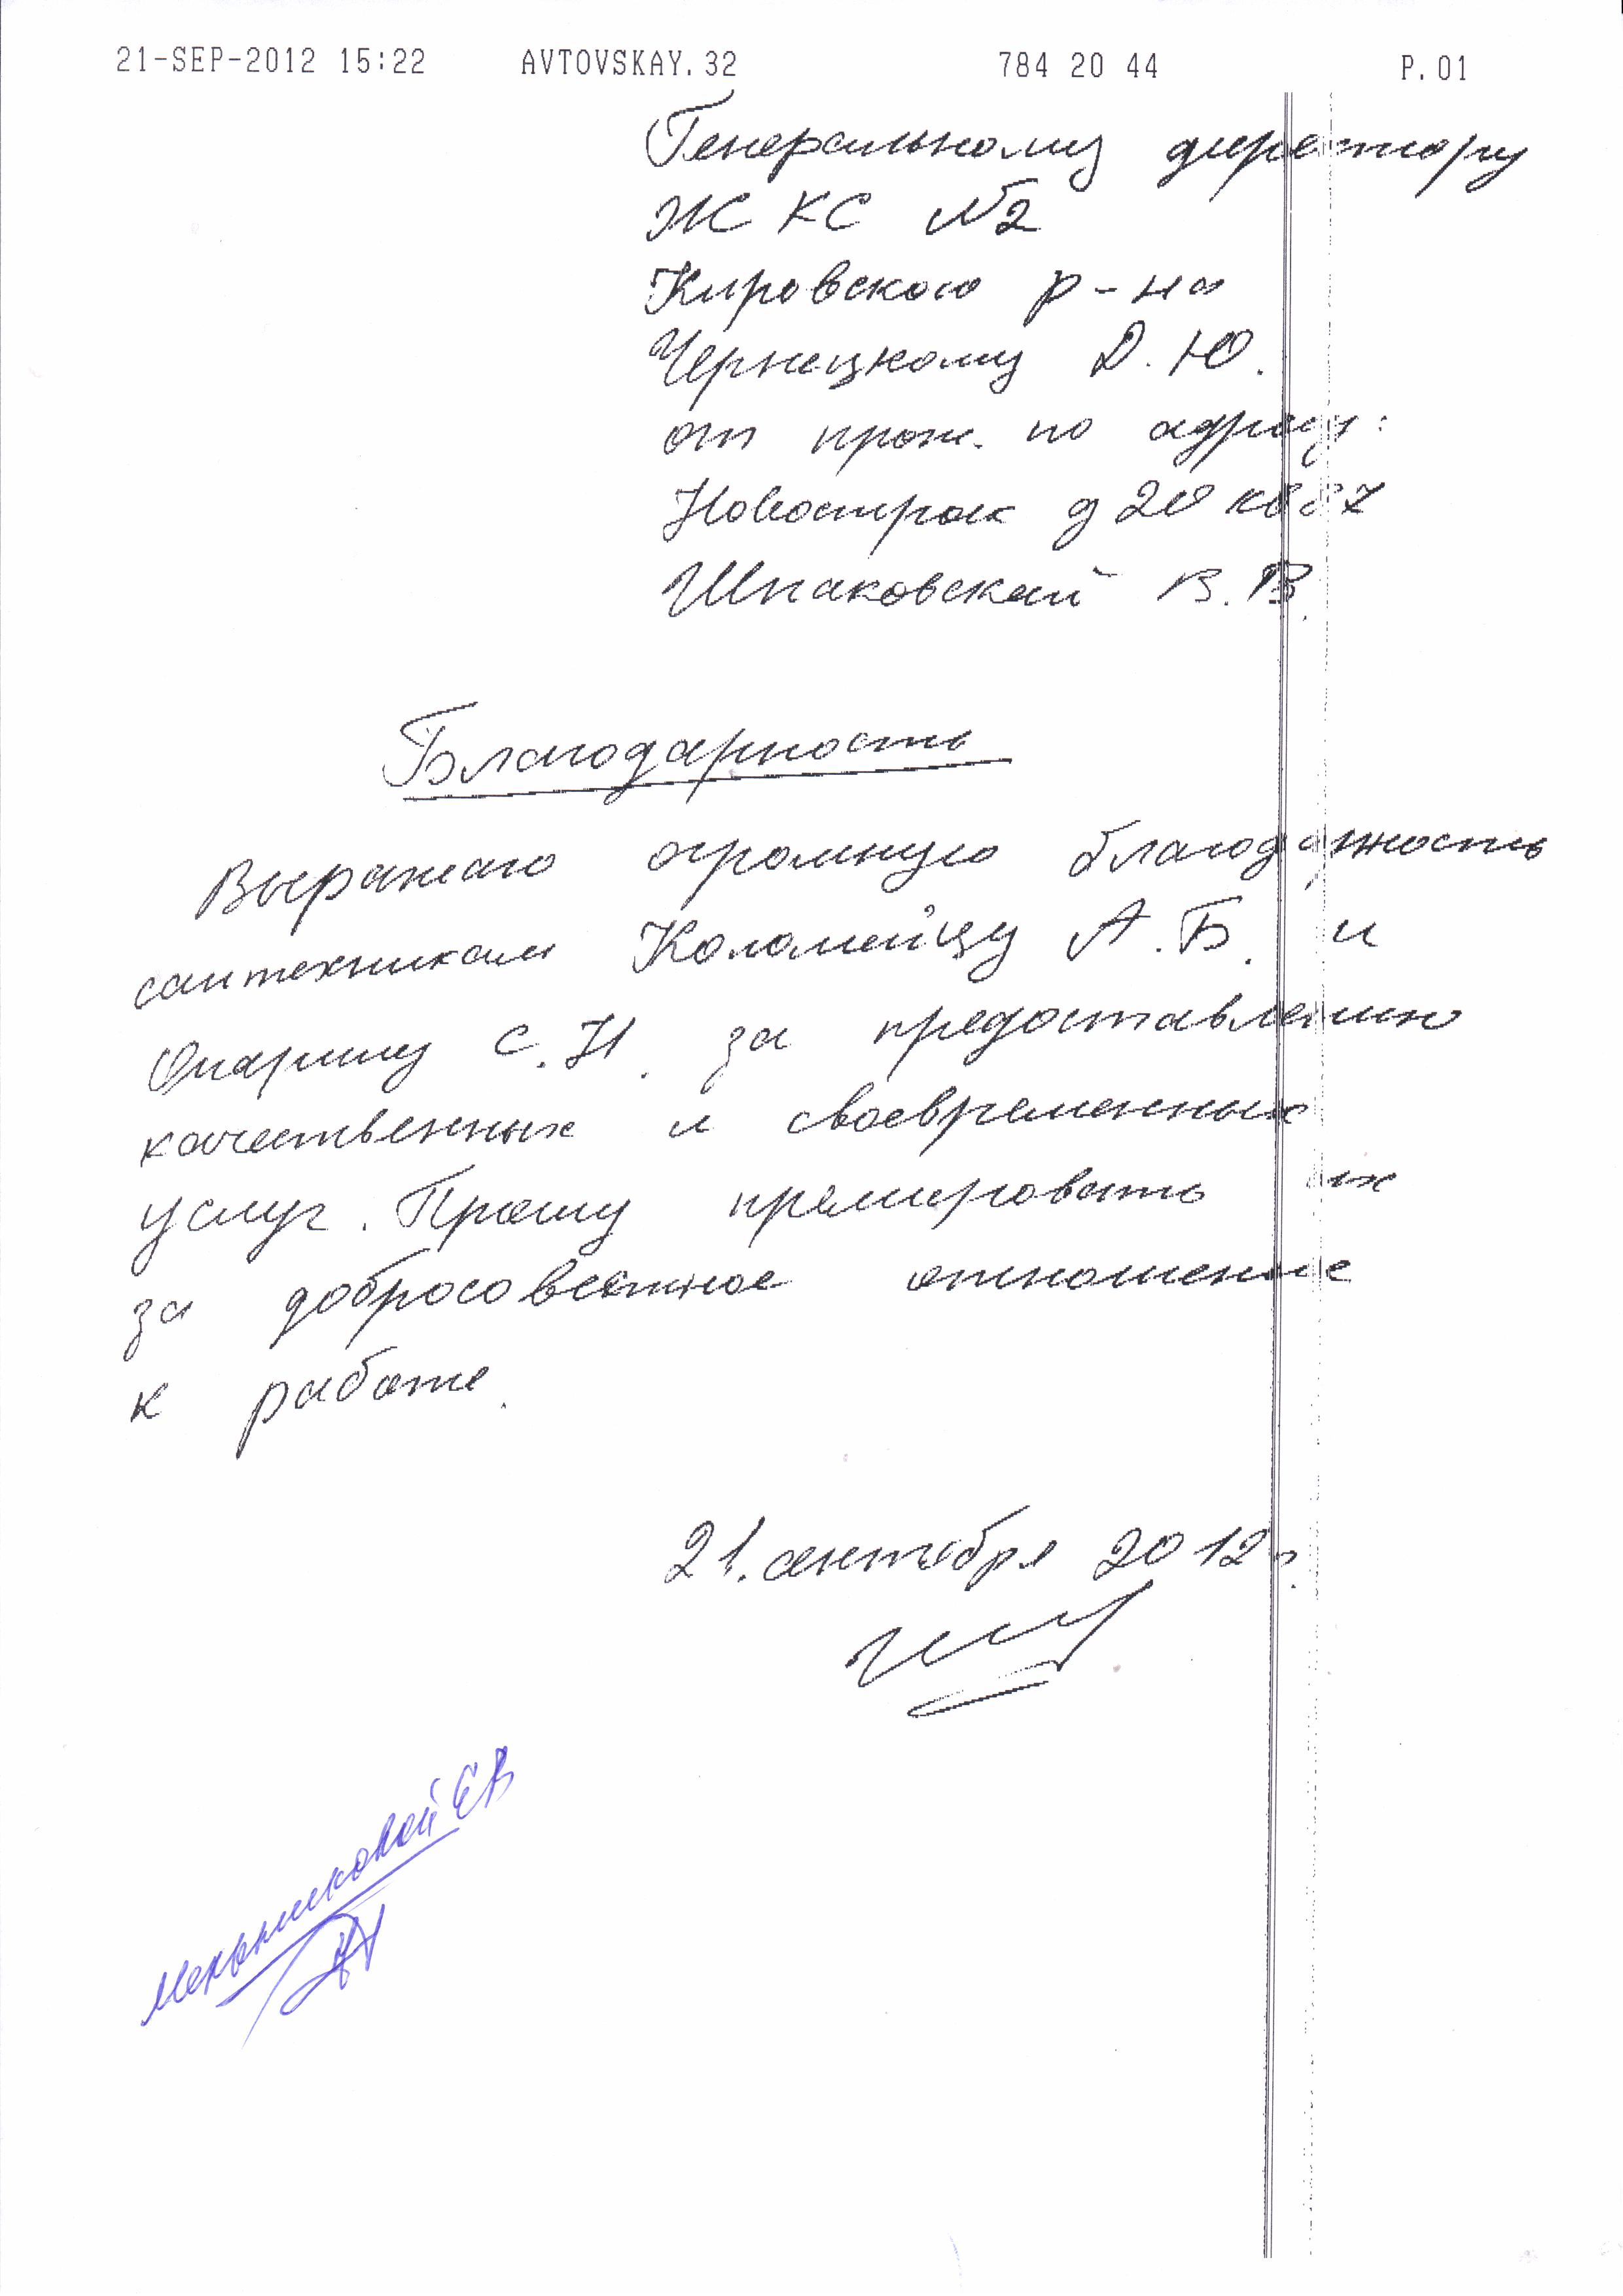 21-SEP-2012 15:22 AVTOVSKAY.32 784 20 44 P.01
Генеральному директору
ЖКС №2
Кировского р-на
Чернецкому Д.Ю.
от прож. по адресу:
Новостроек д 20 кв 87
Шпаковский В.В.
Благодарность
Выражаю огромную благодарность
сантехникам Коломейцу А.Б. и
Опарину С.Н. за предоставлению
качественных и своевременных
услуг. Прошу премировать их
за добросовестное отношение
к работе.
21. сентября 2012 г.
Мельниковой ЕВ